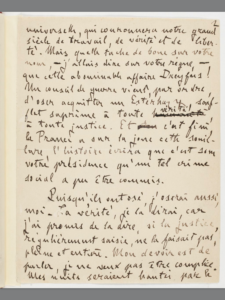 2
universelle, qui couronnera notre grand
siècle de travail, de vérité et de liber-
té. Mais quelle tache de boue sur votre
nom — j'allais dire sur votre règne, —
que cette abominable affaire Dreyfus !
Un conseil de guerre vient, par ordre
d'oser acquitter un Esterhazy, souf-
flet suprême à toute vérité,
à toute justice. Et c'est fini,
la France a sur la joue cette souil-
lure, l'histoire écrira que c'est sous
votre présidence qu'un tel crime
social a pu être commis.
Puisqu'ils ont osé, j'oserai aussi
moi. La vérité, je la dirai, car
j'ai promis de la dire, si la justice,
régulièrement saisie, ne la faisait pas,
pleine et entière. Mon devoir est de
parler, je ne veux pas être complice.
Mes nuits seraient hantées par le